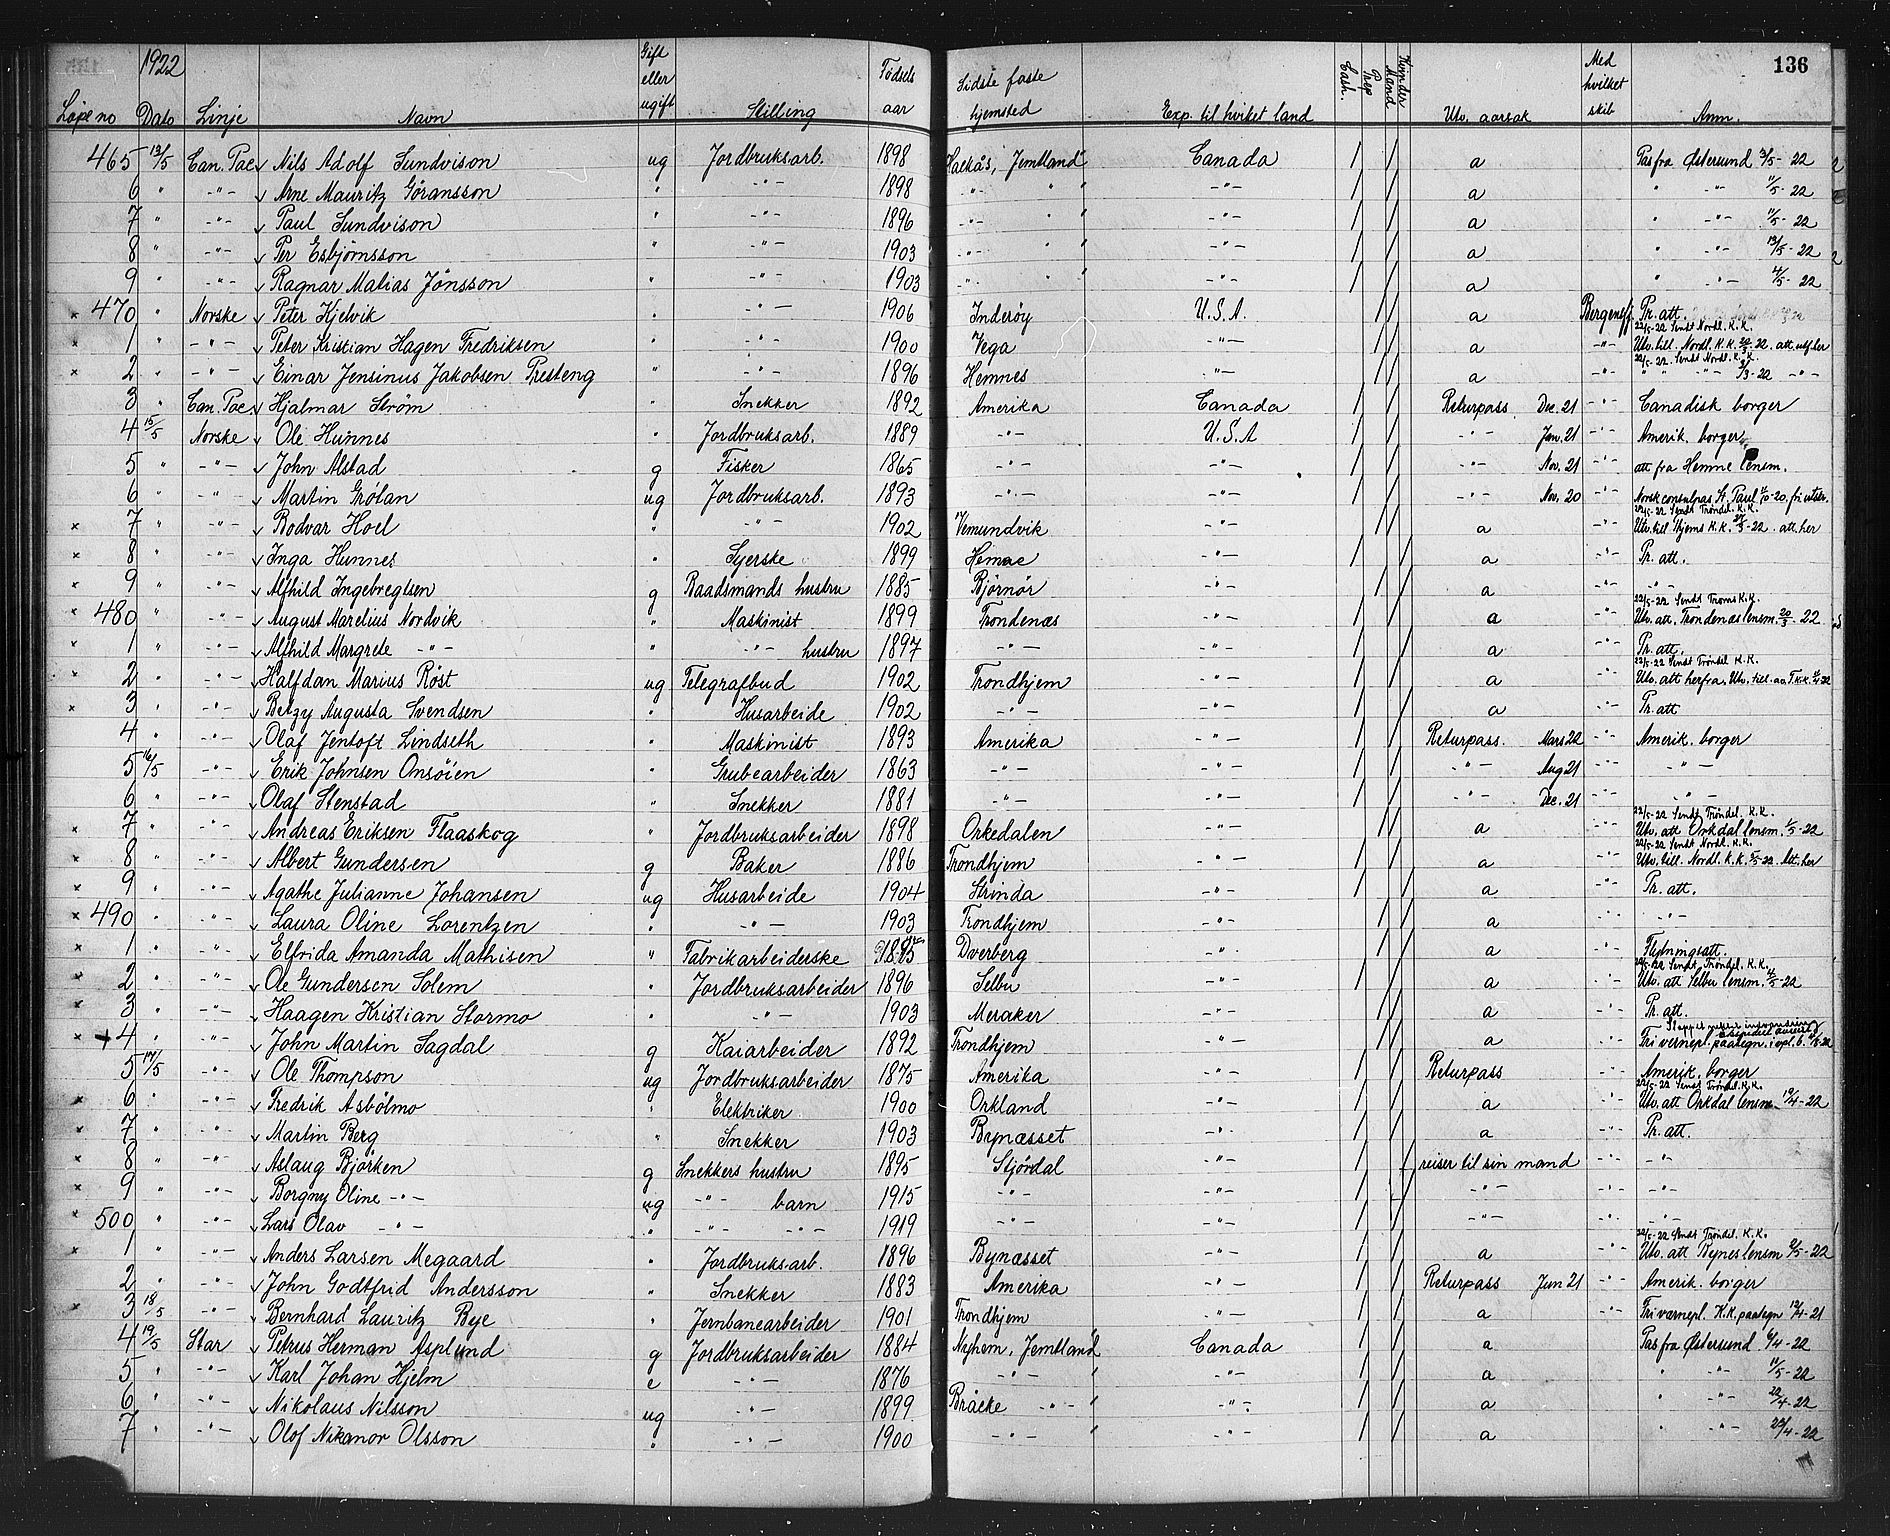 1922 136
Løpe no Dato Linje Navn Gift eller ugift Stilling Fødsels aar Sidste faste hjemsted Exp. til hvilket land Cash. Prep Mænd Kvinder Utv. aarsak Med hvilket skib Anm.
465 13/5 Can. Pac Nils Adolf Sundvison ug Jordbruksarb. 1898 Hackås, Jemtland Canada / // a Pas fra Østersund 12/5-22
6 " -"- Arne Mauritz Göransson " -"- 1898 -"- " -"- / // a " -"- 11/5-22
7 " -"- Paul Sundvison " -"- 1896 -"- " -"- / // a " -"- 11/5-22
8 " -"- Per Esbjörnsson " -"- 1903 -"- " -"- / // a " -"- 13/5-22
9 " -"- Ragnar Matias Jönsson " -"- 1903 -"- " -"- / // a " -"- 4/5-22
× 470 " Norske Peter Kjelvik " -"- 1906 Inderøy U.S.A. / // a Bergensfj. Pr. att.
22/5-22 Sendt Nordl. K.K.
× 1 " -"- Peter Kristian Hagen Fredriksen " -"- 1900 Vega -"- / // a -"- Utv. till. Nordl. K.K. 20/3-22. att. utf. her
22/5-22 Sendt Nordl. K.K.
× 2 " -"- Einar Jensinus Jakobsen Presteng " -"- 1896 Hemnes -"- / // a -"- " " -"- 3/3-22 -"-
3 " Can. Pac. Hjalmar Strøm " Snekker 1892 Amerika Canada / // Returpass Dec. 21 -"- Canadisk borger
4 15/5 Norske Ole Hunnes " Jordbruksarb. 1889 -"- U.S.A / // -"- Jan. 21 -"- Amerik. borger
5 " -"- John Alstad g Fisker 1865 -"- -"- / // -"- Nov. 21 -"- att fra Hemne lensm.
6 " -"- Martin Grötan ug Jordbruksarb. 1893 -"- -"- / // -"- Nov. 20 -"- Norsk consulpas St. Paul 1/10-20. fri utstr.
22/5-22 Sendt Trøndel. K.K.
× 7 " -"- Bodvar Hoel " -"- 1902 Vemundvik -"- / // a -"- Utv. till Hjems K.K. 27/3-22. att. her
× 8 " -"- Inga Hunnes " Syerske 1899 Hemne -"- / // a -"- Pr. att.
× 9 " -"- Alfhild Ingebregtsen g Baadsmands hustru 1885 Bjørnør -"- / // a -"- -"-
22/5-22 Sendt Troms K.K.
× 480 " -"- August Marelius Nordvik " Maskinist 1899 Trondenæs -"- / // a -"- Utv. att. Trondenæs lensm. 20/3-22.
× 1 " -"- Alfhild Margrete -"- " -"- hustru 1897 -"- -"- / // a -"- Pr. att.
22/5-22 Sendt Trøndel K.K.
× 2 " -"- Halfdan Marius Röst ug Telegrafbud 1902 Trondhjem -"- / // a -"- Utv. att herfra. Utv. till. av. T.K.K.
× 3 " -"- Betzy Augusta Svendsen " Husarbeide 1902 -"- -"- / // a -"- Pr. att
4 " -"- Olaf Jentoft Lindseth " Maskinist 1893 Amerika -"- / // Returpass. Mars 22 -"- Amerik. borger
5 16/5 -"- Erik Johnsen Onsöien " Grubearbeider 1863 -"- -"- / // -"- Aug 21 -"- -"-
6 -"- Olaf Stenstad " Snekker 1881 -"- -"- / // -"- Dec. 21 -"- -"-
22/5-22 Sendt Trøndel. K.K.
× 7 " -"- Andreas Eriksen Flaaskog " Jordbruksarbeider 1898 Orkedalen -"- / // a -"- Utv. att Orkdal lensm. 1/5-22
22/5-22 Sendt Nordl. K.K.
× 8 " -"- Albert Gundersen g Baker 1886 Trondhjem -"- / // a -"- Utv. till. Nordl. K.K. 5/5-22. Att. her
× 9 " -"- Agathe Julianne Johansen ug Husarbeide 1904 Strinda -"- / // a -"- Pr. att.
× 490 " -"- Laura Oline Lorentzen " -"- 1903 Trondhjem -"- / // a -"- -"-
× 1 " -"- Elfrida Amanda Mathisen " Fabrikarbeiderske Dverberg -"- / // a -"- Flytningsatt.
22/5-22 Sendt Trøndel. K.K.
× 2 " -"- Ole Gundersen Solem " Jordbruksarbeider 1896 Selbu -"- / // a -"- Utv. att Selbu lensm. 4/5-22
× 3 " -"- Haagen Kristian Stormo " -"- 1903 Meraker -"- / // a -"- Pr. att.
× + 4 " -"- John Martin Sagdal g Kaiarbeider 1892 Trondhjem -"- / // a -"- Fri vernepl. paategn.
5 17/5 -"- Ole Thompson ug Jordbruksarbeider 1875 Amerika -"- / // Returpass -"- Amerik. borger
22/5-22 Sendt Trøndel. K.K.
× 6 " -"- Fredrik Asbölmo " Elektriker 1900 Orkland -"- / // a -"- Utv. att Orkdal lensm. 19/4-22
× 7 " -"- Martin Berg " Snekker 1903 Bynæsset -"- / // a -"- Pr. att.
× 8 " -"- Aslaug Björken g Snekkers hustru 1895 Stjördal -"- / / reiser til sin mand -"- -"-
× 9 " -"- Borgny Oline -"- ug -"- barn 1915 -"- -"- / / -"- -"- -"-
× 500 " -"- Lars Olav -"- " -"- -"- 1919 -"- -"- / // -"- -"- -"-
22/5-22 Sendt Trøndel. K.K.
× 1 " -"- Anders Larsen Megaard " Jordbruksarb. 1896 Bynæsset -"- / // a -"- Utv. att Bynes lensm 9/5-22
2 " -"- John Godtfrid Andersson " Snekker 1883 Amerika -"- / // Returpass Jun 21 -"- Amerik. borger
× 3 18/5 -"- Bernhard Lauritz Bye " Jernbanearbeider 1901 Trondhjem -"- / // a -"- Fri værnepl. K.K. paategn 12/4-21
4 19/5 Star Petrus Herman Asplund g Jordbruksarbeider 1884 Nyhem, Jemtland Canada / // a Pas fra Østersund 6/4-22
5 " -"- Karl Johan Hjelm e -"- 1876 -"- " -"- / // a " -"- 11/5-22
6 " -"- Nikolaus Nilsson ug -"- 1899 Bräcke -"- " -"- / // a " -"- 22/4-22
7 " -"- Olof Nikanor Olsson " -"- 1900 -"- " -"- / // a " -"- 25/4-22